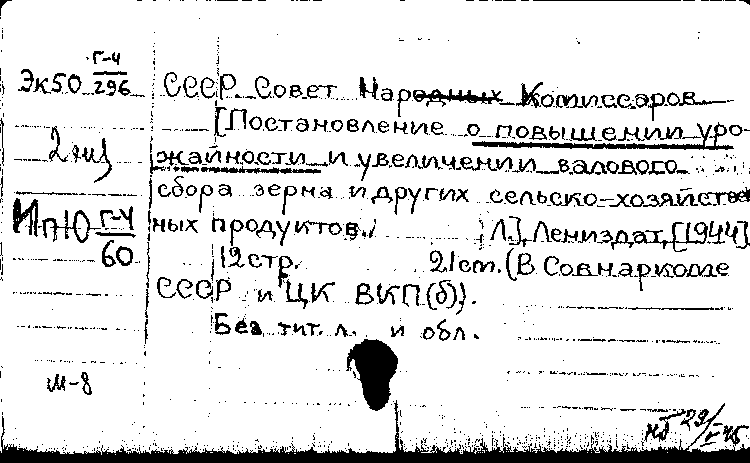 Г-4
Эк50 296 СССР Совет Народных Комиссаров
[Постановление о повышении уро-
2 экз жайности и увеличении валового
сбора зерна и других сельско-хозяйствен
Ип10 Г-4 ных продуктов./ Л], Лениздат, [1944]
60 12стр. 21ст. (В Совнаркоме
СССР и ЦК ВКП(б)).
Без тит. л. и обл.
м-8